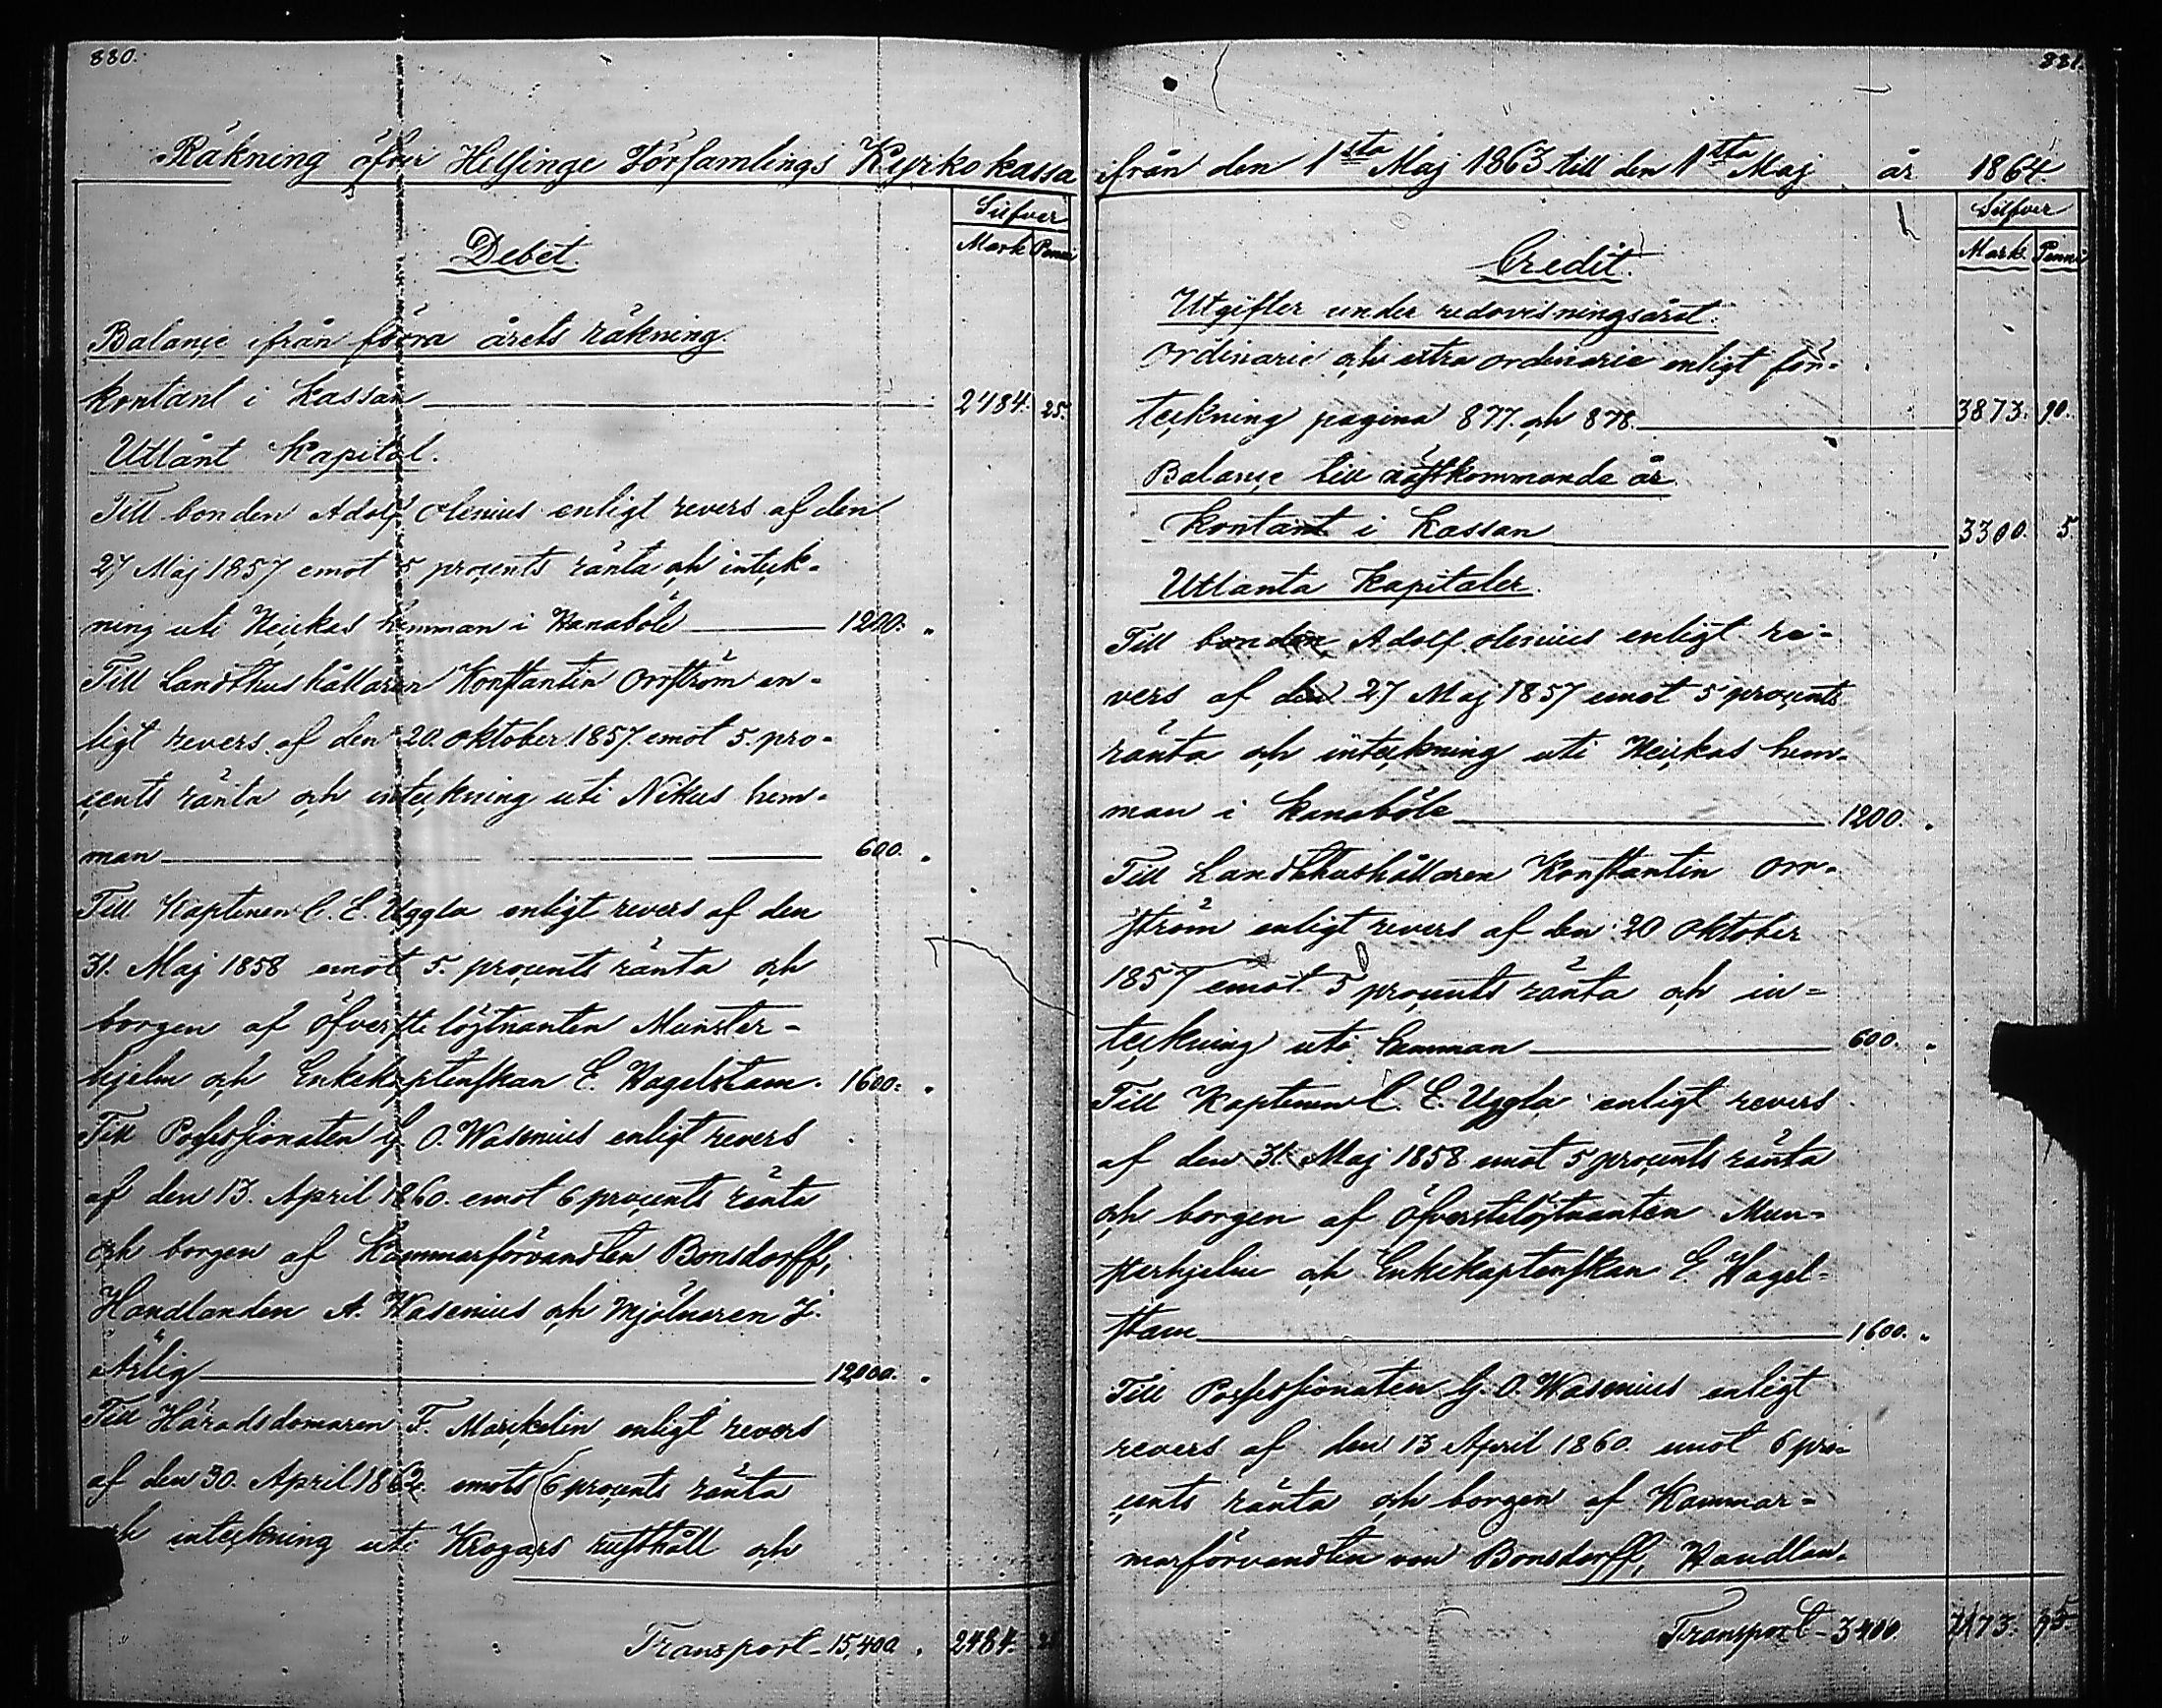 880.
Räkning öfver Helsinge Församlings Kyrko kassa
Silfver
Mark Penni
Debet.
Balançe ifrån förra årets räkning.
kontant i kassan 2484. 25.
Utlånt Kapital.
Till bonden Adolf Olenius enligt revers af den
27 Maj 1857 emot 5 proçents ränta och inteçk-
ning uti Heiçkas hemman i Hanaböle 1200. „
Till Landthushållaren Konstantin Orrström en-
ligt revers af den 20. Oktober 1857. emot 5. pro-
çents ränta och inteçkning uti Nikus hem-
man 600. „
Till Kaptenen C. E. Uggla enligt revers af den
31. Maj 1858 emot 5. proçents ränta och
borgen af Öfverste löjtnanten Munster-
hjelm och Enkekaptenskan E. Wagelstam. 1600. „
Till Possessionaten G. O. Wasenius enligt revers
af den 13. April 1860. emot 6 proçents ränta
och borgen af Kammarförvandten Bonsdorff,
Handlanden A. Wasenius och Mjölnaren J.
Ärlig 12,000. „
Till Häradsdomaren F. Marçkelin enligt revers
af den 30. April 1862. emots 6 proçents ränta
och inteçkning uti Krogars rusthåll och
Transport 15,400. „ 2484.
881.
ifrån den 1sta Maj 1863 till den 1sta Maj år 1864.
Silfver
Mark. Penni
Credit.
Utgifter under redovisningsåret.
Ordinarie och extra ordinarie enligt för-
teçkning pagina 877. och 878. 3873. 90.
Balançe till nästkommande år
kontant i kassan 3300. 5.
Utlånta Kapitaler.
Till bonden Adolf Olenius enligt re-
vers af den 27 Maj 1857 emot 5 proçents
ränta och inteçkning uti Heiçkas hem-
man i Hanaböle 1200. „
Till Landthushållaren Konstantin Orr-
ström enligt revers af den 20 Oktober
1857 emot 5 proçents ränta och in-
teçkning uti hemman 600. „
Till Kaptenen C. E. Uggla enligt revers
af den 31. Maj 1858 emot 5 proçents ränta
och borgen af Öfverstelöjtnanten Mun-
sterhjelm och Enkekaptenskan E. Wagel-
stam 1600. „
Till Possessionaten G. O. Wasenius enligt
revers af den 13 April 1860. emot 6 pro-
çents ränta och borgen af Kammar-
marförvandten von Bonsdorff, Handlan-
Transport 3400. 7173. 95.